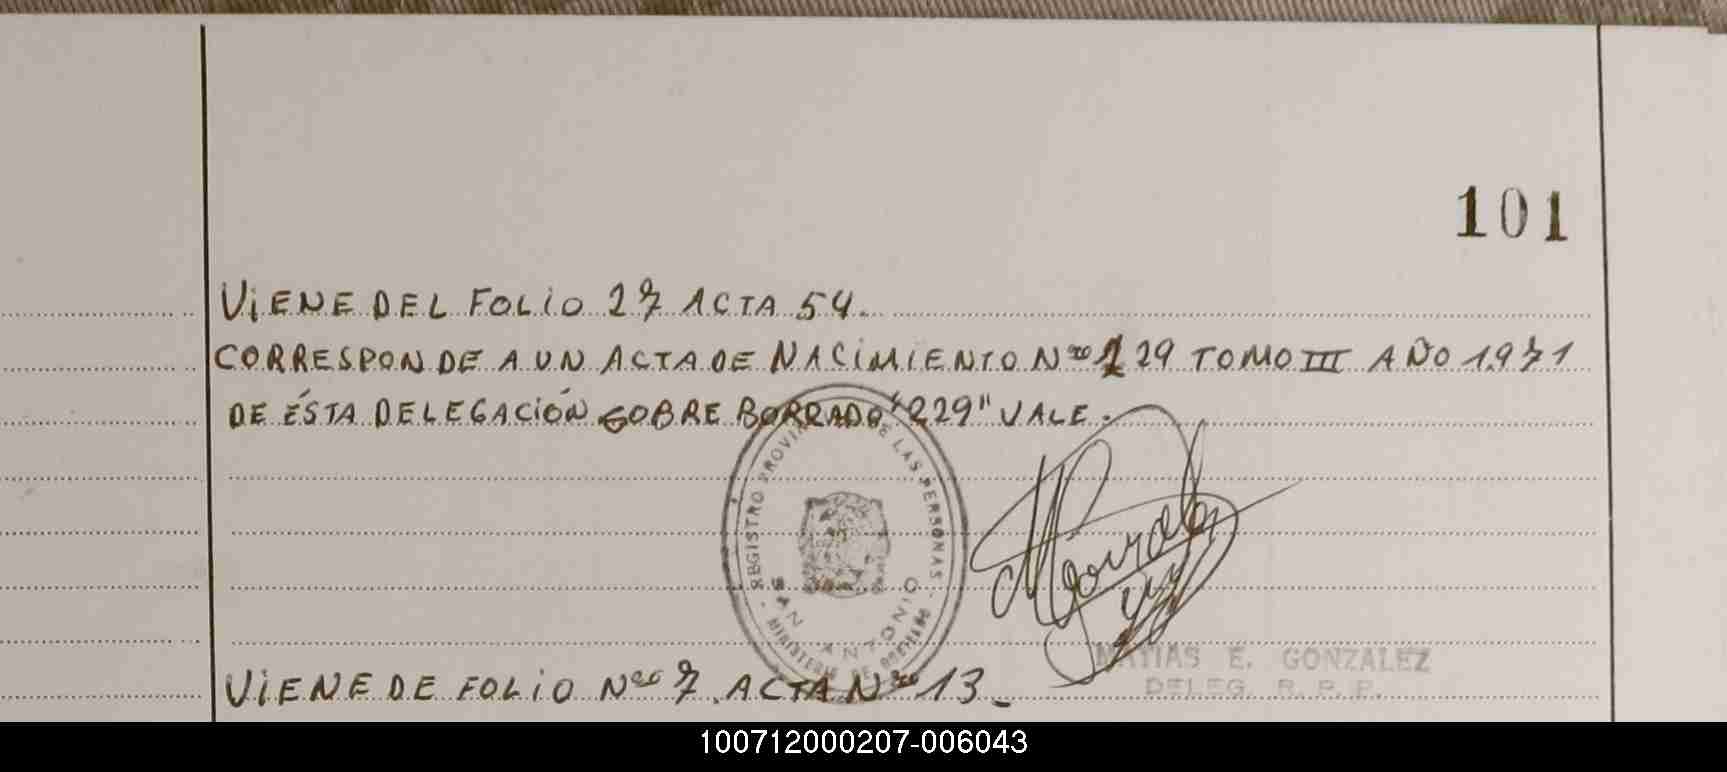 101
VIENE DEL FOLIO 27 ACTA 54.
CORRESPONDE A UN ACTA DE NACIMIENTO Nro 229 TOMO III AÑO 1.971
DE ÉSTA DELEGACIÓN SOBRE BORRADO "229" VALE.
REGISTRO PROVINCIAL DE LAS PERSONAS
SAN ANTONIO
MINISTERIO DE GOBIERNO
MATIAS E. GONZALEZ
DELEG. R. P. P.
VIENE DE FOLIO Nro 7. ACTA Nro 13.
100712000207-006043